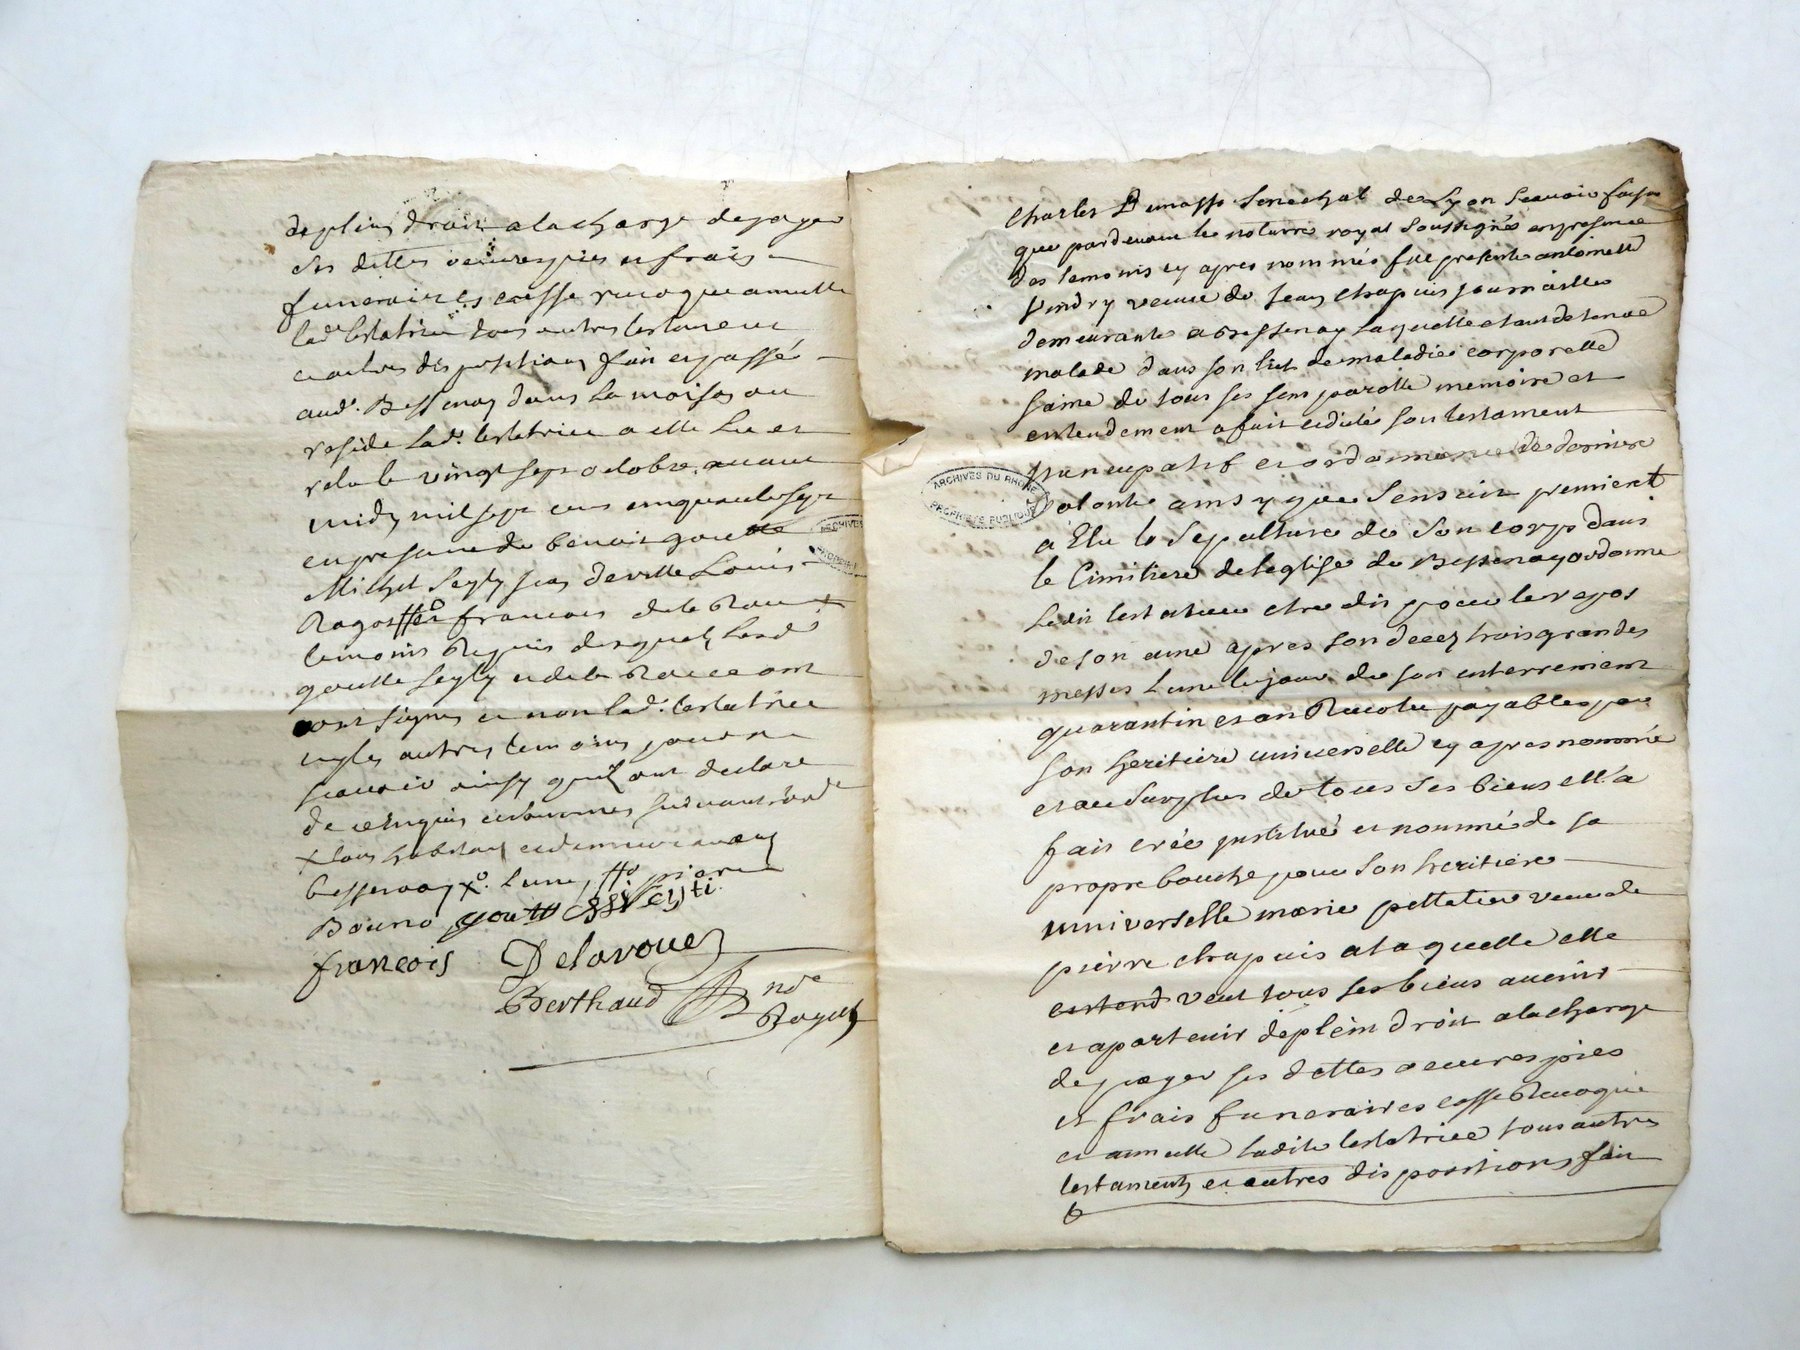 de plein droit a la charge de payer
ses dettes oeuvres pies et frais
funeraires casse revoque annulle
lad. testatrice tous autres testament
et autres dispositions fait et passé
aud. Bessenay dans la maison ou
reside lad. testatrice a elle lu et
relu le vingt sept octobre avant
midy mil sept cens cinquante sept
en presence de benoit goutte
Michel Seyty jean deville Louis
Ragot francois dela Roue
temoins Requis desquels lesd.
goutte Seyty et dela Roue ont
signes et non lad. testatrice
ny les autres temoins pour ne
scavoir ainsy qu'ils ont declaré
de ce enquis et sommes suivant l'ord.
x tous habitans et demeurans aud.
bessenay x. pierre
goutte Seyti
francois Delaroue
Berthaud nore
Royal
Charles Demasso Senechal de Lyon Scavoir faison
que pardevant le notaire royal Soussigné en presence
des temoins cy apres nommés fut presente antoinette
Vindry veuve de Jean Chapuis journaillier
demeurante a Bessenay Laquelle etant detenue
malade dans son lict de maladie corporelle
saine de tous ses sens parolle memoire et
entendement a fait et dicté son testament
nuncupatif et ordonnance de derniere
volonté ainsy que s'ensuit premierett
a Elu la Sepulture de son corps dans
le Cimitiere de leglise de Bessenay ordonne
Ladit testatrice etre dit pour le repos
de son ame apres son decez trois grandes
messes l'une le jour de son enterrement
quarantin et an Revolu payables par
son heritiere universelle cy apres nommée
et au Surplus de tous ses biens ell'a
fait créé institué et nommé de sa
propre bouche pour son heritiere
universelle marie pelletier veuve de
pierre chapuis a laquelle elle
entend veut tous ses biens avenir
et apartenir de plein droit a la charge
de payer ses dettes oeuvres pies
et frais funeraires casse Revoque
et annulle ladite testatrice tous autres
testaments et autres dispositions fait
ARCHIVES DU RHÔNE
PROPRIÉTÉ PUBLIQUE
ARCHIVES